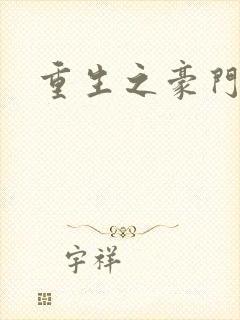 重生之豪門
宇祥